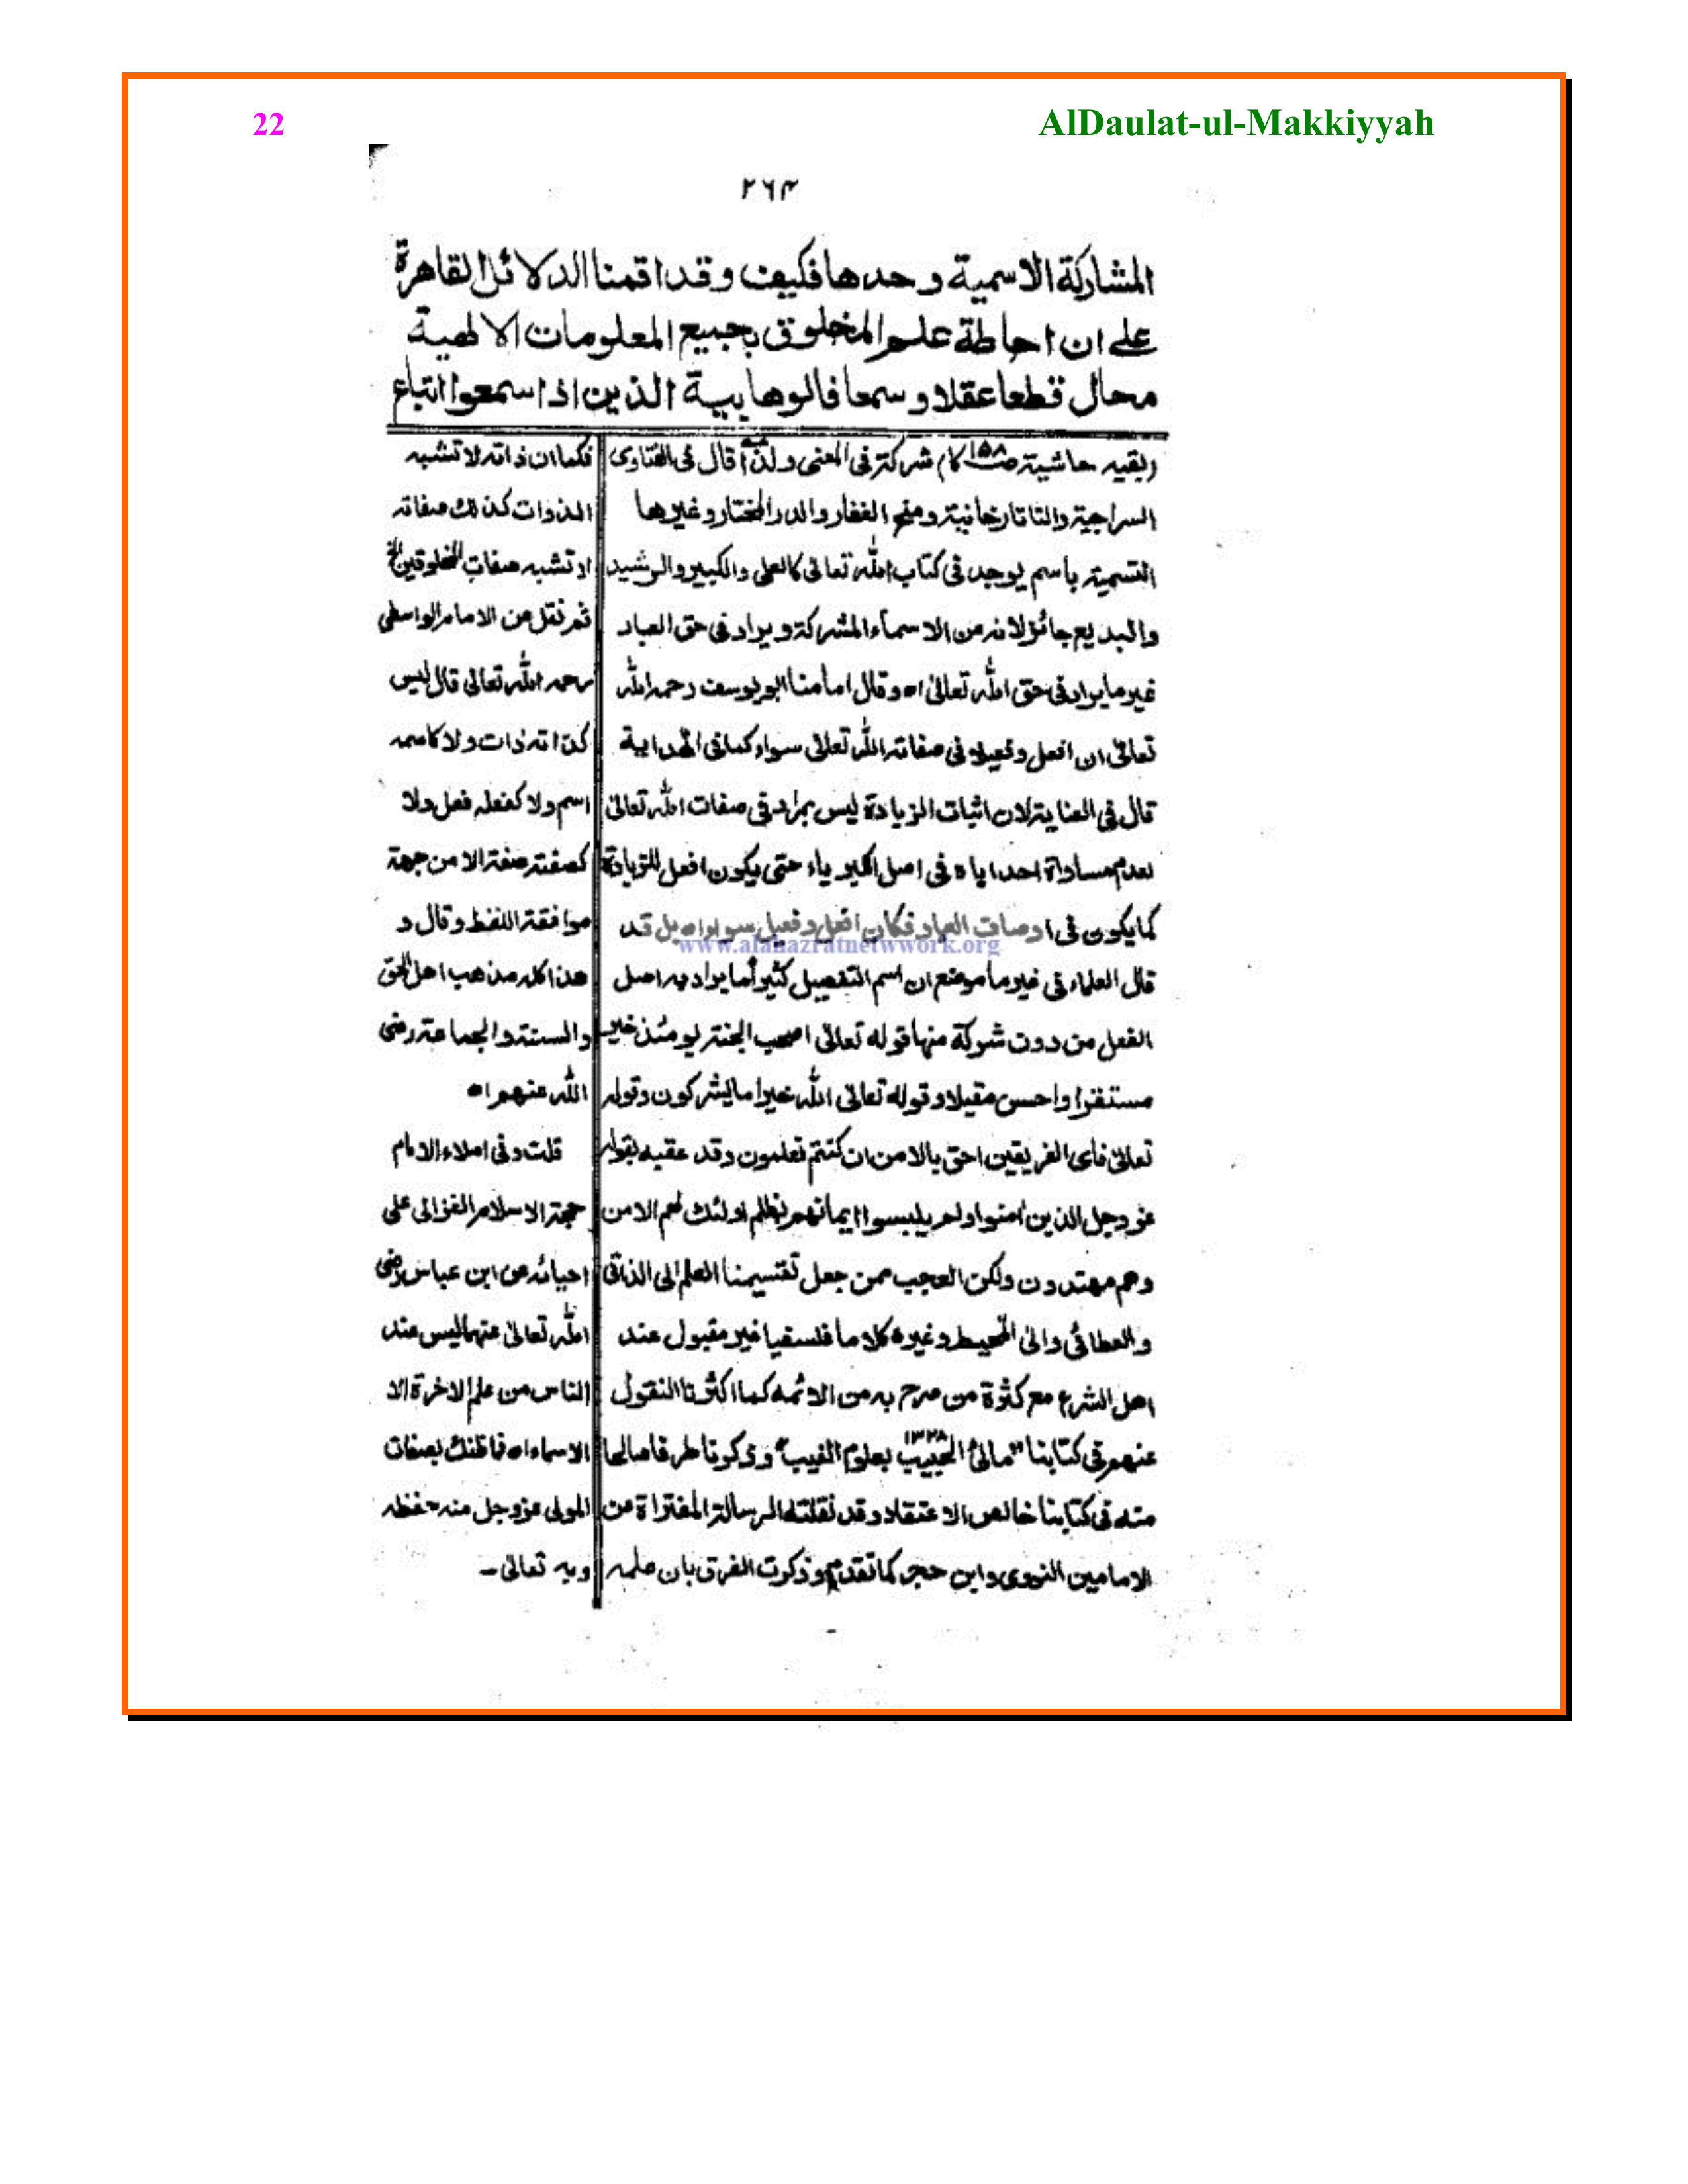 22
AlDaulat-ul-Makkiyyah
۲۶۴
المشاركة الاسمية وحدها فكيف وقد اقمنا الدلائل القاهرة
على ان احاطة علم المخلوق بجميع المعلومات الالهية
محال قطعا عقلا وسمعا فالوهابية الذين اذا سمعوا اتباع
(بقيه حاشية ص۱۵۸ كام شركة فى المعنى ولذا قال فى الفتاوى
السراجية والتاتارخانية ومنح الغفار والدر المختار وغيرها
التسمية باسم يوجد فى كتاب الله تعالى كالعلى والكبير والرشيد
والبديع جائز لانه من الاسماء المشركة ويراد فى حق العباد
غير ما يراد فى حق الله تعالى اه وقال امامنا ابو يوسف رحمه الله
تعالى ان افعل وفعيلا فى صفاته الله تعالى سواء كما فى الهداية
قال فى العناية لان اثبات الزيادة ليس بمراد فى صفات الله تعالى
لعدم مساواة احد اياه فى اصل الكبرياء حتى يكون افعل للزيادة
كما يكون فى اوصاف العباد فكان افعل وفعيل سواء اه بل قد
www.alahazratnetwwork.org
قال العلماء فى غير ما موضع ان اسم التفضيل كثيرا ما يراد به اصل
الفعل من دون شركة منها قوله تعالى اصحب الجنة يومئذ خير
مستقرا واحسن مقيلا وقوله تعالى الله خير اما يشركون وقوله
تعالى فاى الفريقين احق بالامن ان كنتم تعلمون وقد عقبه بقوله
عز وجل الذين امنوا ولم يلبسوا ايمانهم بظلم اولئك لهم الامن
وهم مهتدون ولكن العجب ممن جعل تقسيمنا العلم الى الذاتى
والعطائى والى المحيط وغيره كلاما فلسفيا غير مقبول عند
اهل الشرع مع كثرة من صرح به من الائمه كما اكثرنا النقول
عنهم فى كتابنا "مالئ الحبيب ۱۳۲۸ بعلوم الغيب" وذكرنا طرفا صالحا
منه فى كتابنا خالص الاعتقاد وقد نقلته الرسالة المفتراة عن
الامامين النووى وابن حجر كما تقدم وذكرت الفرق بان علمه
فكما ان ذاته لا تشبه
الذوات كذلك صفاته
لا تشبه صفات المخلوقين الخ
ثم نقل عن الامام الواسطى
رحمه الله تعالى قال ليس
كذاته ذات ولا كاسمه
اسم ولا كفعله فعل ولا
كصفته صفة الا من جهة
موافقة اللفظ وقال و
هذا كله مذهب اهل الحق
والسنة والجماعة رضى
الله عنهم اه
قلت وفى املاء الامام
حجة الاسلام الغزالى على
احيائه عن ابن عباس رضى
الله تعالى عنهما ليس عند
الناس من علم الاخرة الا
الاسماء اه فما ظنك بصفات
المولى عز وجل منه حفظه
ربه تعالى ـ